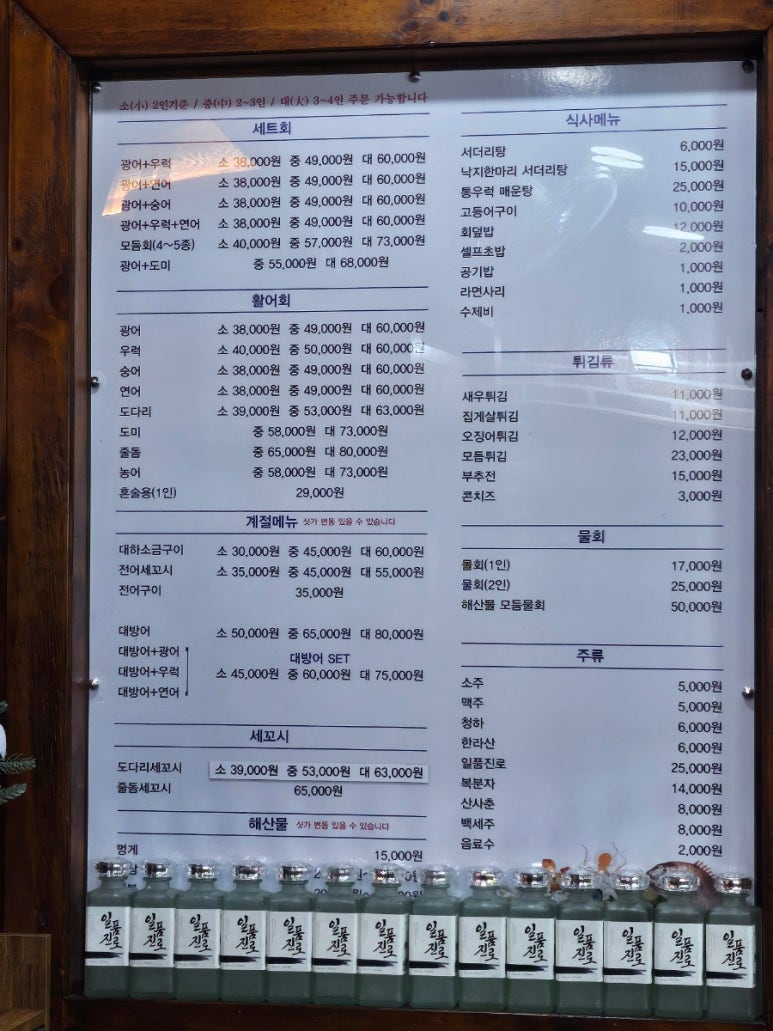 소(小) 2인기준 / 중(中) 2~3인 / 대(大) 3~4인 주문 가능합니다
세트회
광어+우럭 소 38,000원 중 49,000원 대 60,000원
광어+연어 소 38,000원 중 49,000원 대 60,000원
광어+숭어 소 38,000원 중 49,000원 대 60,000원
광어+우럭+연어 소 38,000원 중 49,000원 대 60,000원
모듬회(4~5종) 소 40,000원 중 57,000원 대 73,000원
광어+도미 중 55,000원 대 68,000원
활어회
광어 소 38,000원 중 49,000원 대 60,000원
우럭 소 40,000원 중 50,000원 대 60,000원
숭어 소 38,000원 중 49,000원 대 60,000원
연어 소 38,000원 중 49,000원 대 60,000원
도다리 소 39,000원 중 53,000원 대 63,000원
도미 중 58,000원 대 73,000원
줄돔 중 65,000원 대 80,000원
농어 중 58,000원 대 73,000원
혼술용(1인) 29,000원
계절메뉴 싯가 변동 있을 수 있습니다
대하소금구이 소 30,000원 중 45,000원 대 60,000원
전어세꼬시 소 35,000원 중 45,000원 대 55,000원
전어구이 35,000원
대방어 소 50,000원 중 65,000원 대 80,000원
대방어+광어
대방어 SET
대방어+우럭 소 45,000원 중 60,000원 대 75,000원
대방어+연어
세꼬시
도다리세꼬시 소 39,000원 중 53,000원 대 63,000원
줄돔세꼬시 65,000원
해산물 싯가 변동 있을 수 있습니다
멍게 15,000원
식사메뉴
서더리탕 6,000원
낙지한마리 서더리탕 15,000원
통우럭 매운탕 25,000원
고등어구이 10,000원
회덮밥 12,000원
셀프초밥 2,000원
공기밥 1,000원
라면사리 1,000원
수제비 1,000원
튀김류
새우튀김 11,000원
집게살튀김 11,000원
오징어튀김 12,000원
모듬튀김 23,000원
부추전 15,000원
콘치즈 3,000원
물회
물회(1인) 17,000원
물회(2인) 25,000원
해산물 모듬물회 50,000원
주류
소주 5,000원
맥주 5,000원
청하 6,000원
한라산 6,000원
일품진로 25,000원
복분자 14,000원
산사춘 8,000원
백세주 8,000원
음료수 2,000원
일품진로 일품진로 일품진로 일품진로 일품진로 일품진로 일품진로 일품진로 일품진로 일품진로 일품진로 일품진로 일품진로 일품진로